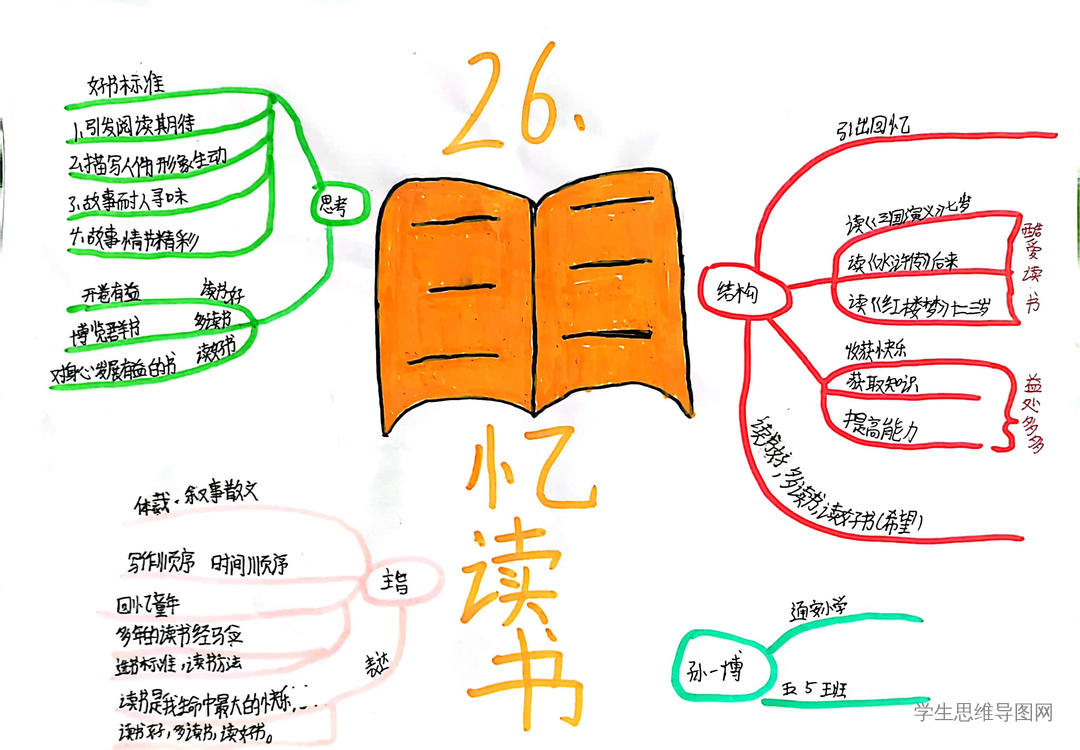 26.
忆读书
思考
好书标准
1、引发阅读期待
2、描写人物形象生动
3、故事耐人寻味
4、故事情节精彩
开卷有益 读书好
博览群书 多读书
对身心发展有益的书 读好书
结构
引出回忆
读《三国演义》七岁
读《水浒传》后来
读《红楼梦》十二三岁
酷爱读书
收获快乐
获取知识
提高能力
益处多多
读书好,多读书,读好书(希望)
主旨
体裁·叙事散文
写作顺序 时间顺序
回忆童年
多年的读书经验
选书标准,读书方法
表达
读书是我生命中最大的快乐;…
读书好,多读书,读好书。
孙一博
通安小学
五5班
学生思维导图网